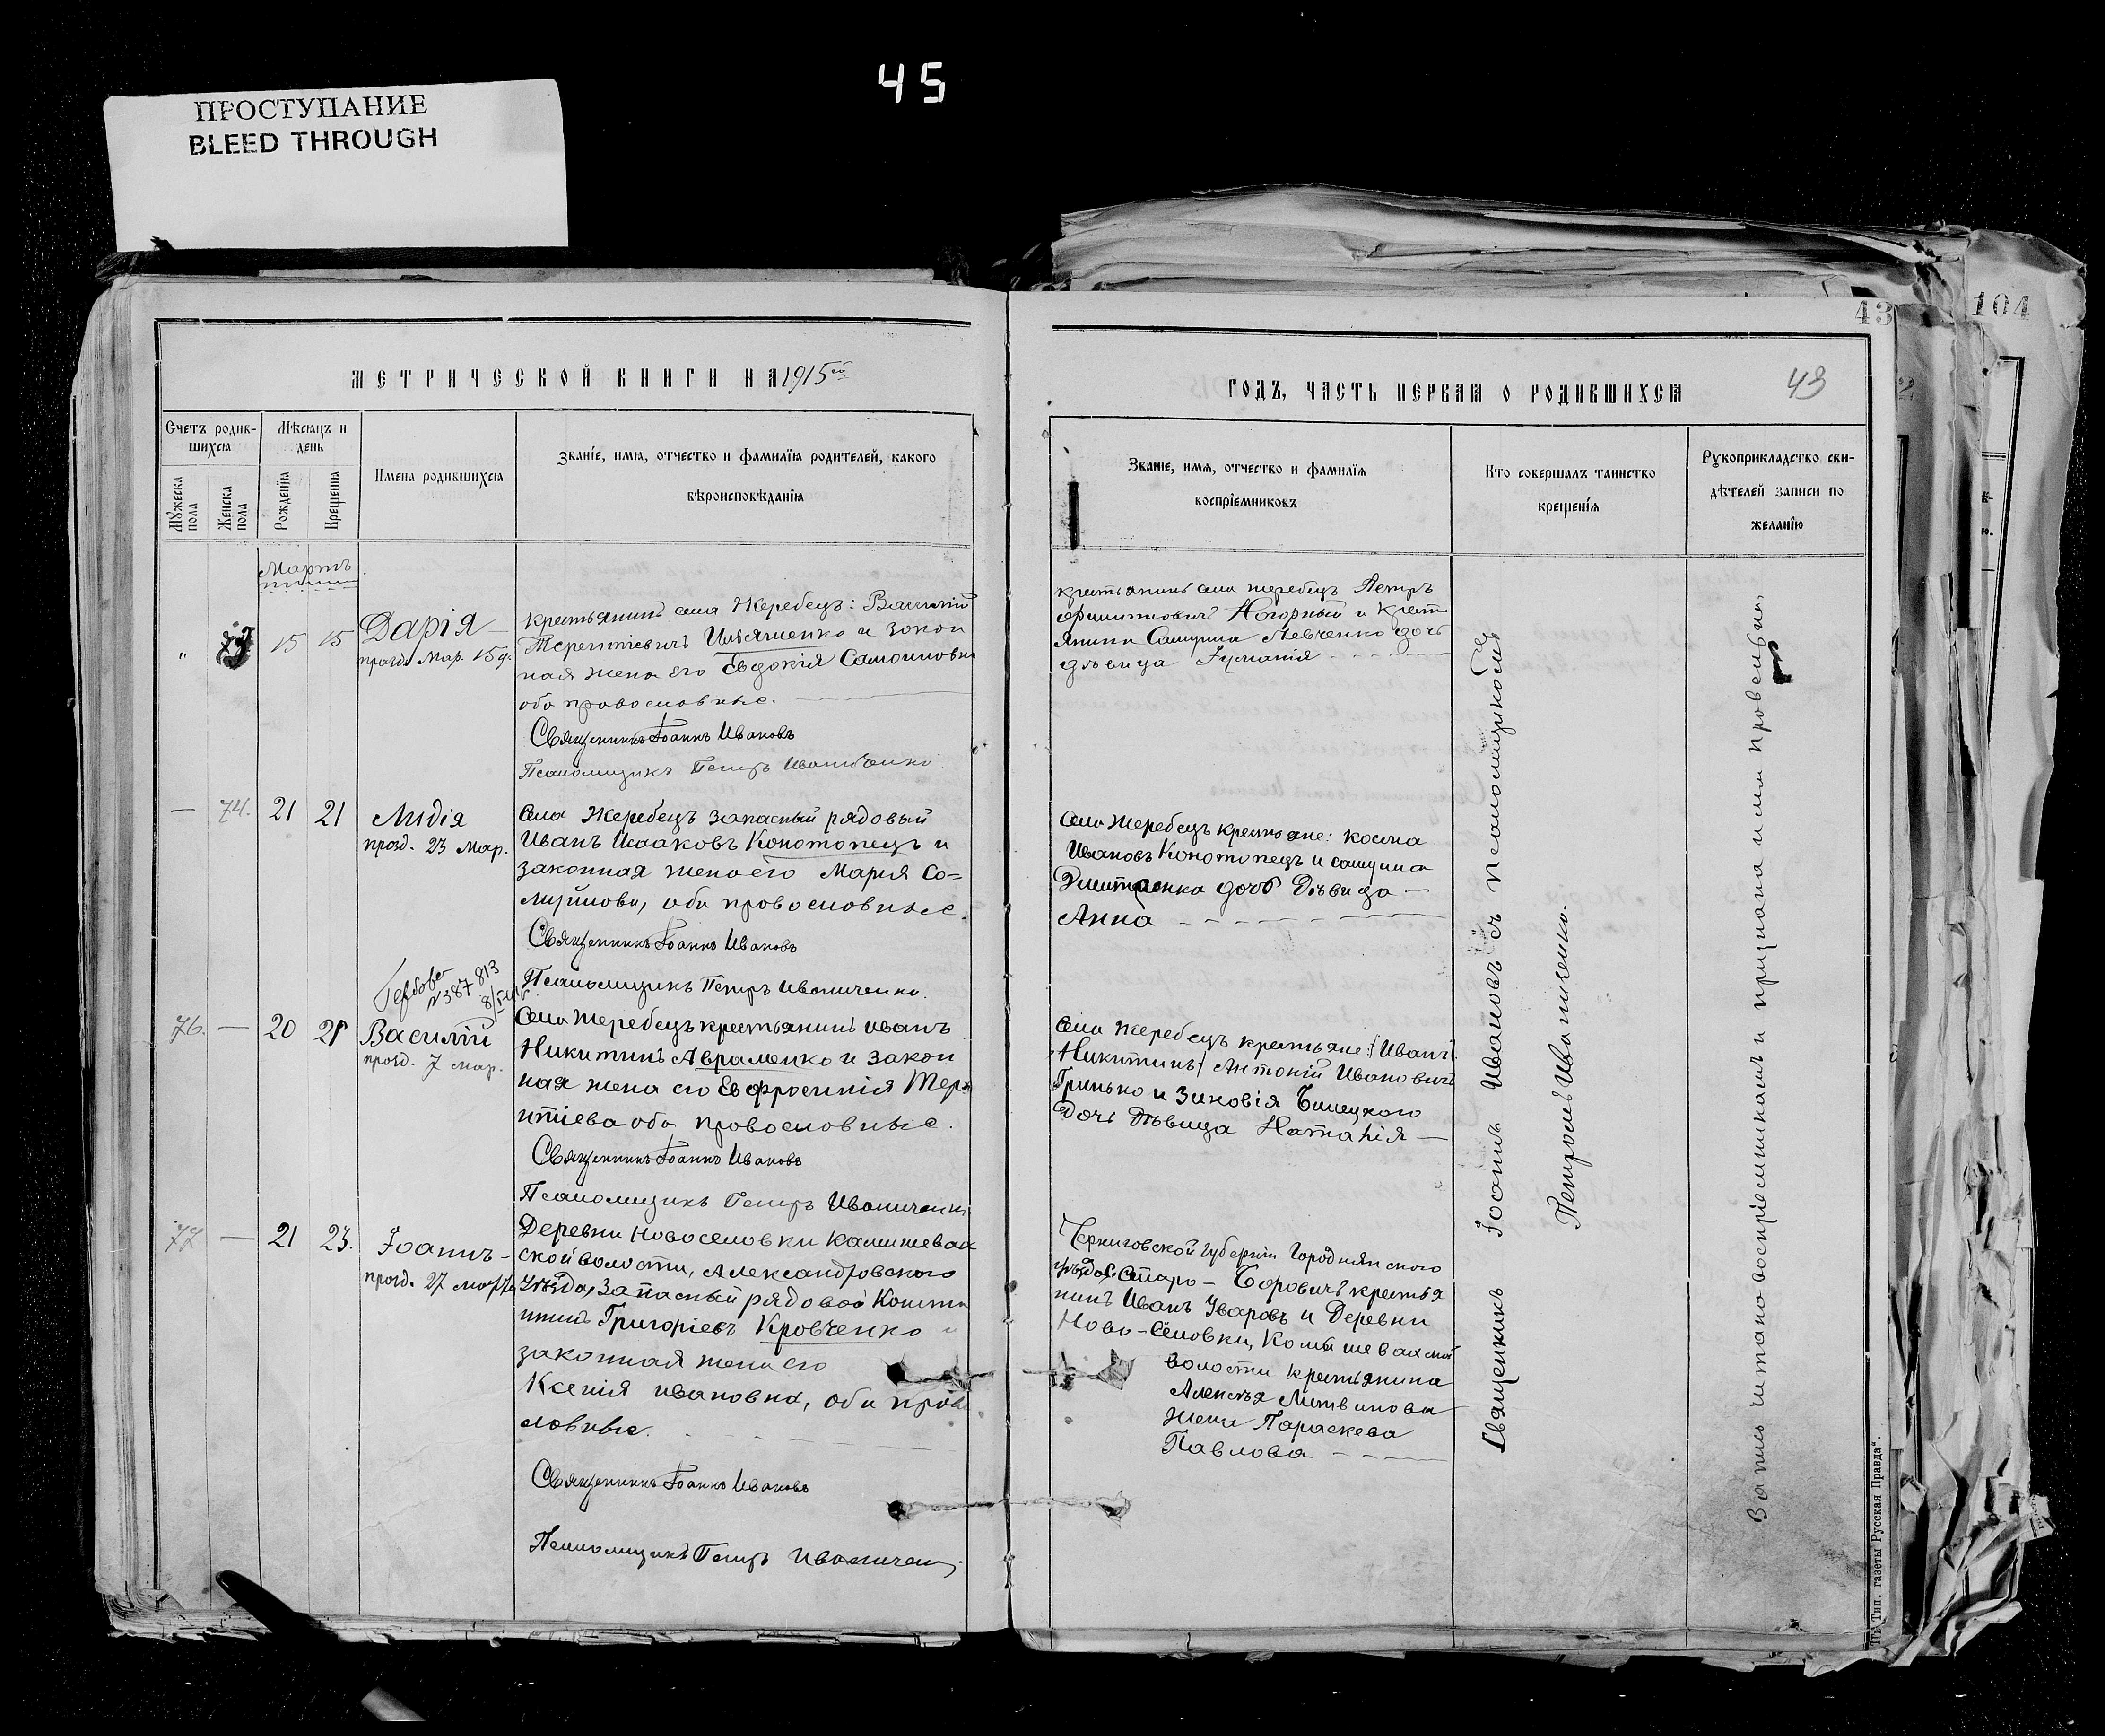 45
ПРОСТУПАНИЕ
BLEED THROUGH
43
104
МЕТРИЧЕСКОЙ КНИГИ НА 1915ой
ГОДЪ, ЧАСТЬ ПЕРВАЯ О РОДИВШИХСЯ
43
Счетъ родив-
шихся
Мужеска пола
Женска пола
Мѣсяцъ и
день
Рожденїя
Крещенія
Имена родившихся
Званїе, имя, отчество и фамилїя родителей, какого
вѣроисповѣданїя
Званіе, имя, отчество и фамилїя
воспрїемниковъ
Кто совершалъ таинство
крещенїя
Рукоприкладство сви-
дѣтелей записи по
желанїю
Мартъ
" 15 15 Дарія
празд. Мар. 15 д.
крестьянинъ села Жеребецъ: Василій
Терентіевичъ Ильяшенко и закон
ная жена его Евдокія
оба православные.
Священникъ Іоаннъ Ивановъ
Псаломщикъ Петръ Иваниченко
крестьянинъ села Жеребецъ Петръ
Нагорный и крест
янина Левченко дочь
дѣвица
— 74. 21 21 Лидія
празд. 23 Мар.
Села Жеребецъ запасный рядовый
Иванъ Исааковъ Конотопецъ и
законная жена его Марія Со=
оба православные.
Священникъ Іоаннъ Ивановъ
Псаломщикъ Петръ Иваниченко.
Села Жеребецъ крестьяне: Косма
Ивановъ Конотопецъ и
дочь Дѣвица —
Анна
Гербовая
№387813
76. — 20 21 Василій
празд. 7 мар.
Села Жеребецъ крестьянинъ Иванъ
Никитинъ Авраменко и закон
ная жена его Евфросинія Тере
нтіева оба православные.
Священникъ Іоаннъ Ивановъ
Псаломщикъ Петръ Иваниченко
Села Жеребецъ крестьяне: (Иванъ
Никитинъ) Антоній Ивановичъ
Гринько и Зиновія
дочь Дѣвица Наталія —
77 — 21 23. Іоаннъ
празд. 27 марта
Деревни Новоселовки Камышевах
ской волости, Александровского
уѣзда, Запасный рядовой Конста
нтинъ Григоріевъ Кравченко и
законная жена его
Ксенія Ивановна, оба право
славные.
Священникъ Іоаннъ Ивановъ
Псаломщикъ Петръ Иваниченко
Черниговской Губерніи Городнянского
уѣзда Старо-Боровичъ крестья
нинъ Иванъ Уваровъ и Деревни
Ново-Селовки, Камышевахской
волости крестьянина
Алексѣя Литвинова
жена Параскева
Павлова
Священникъ Іоаннъ Ивановъ съ псаломщикомъ
Петромъ Иваниченко.
Тип. газеты „Русская Правда“.